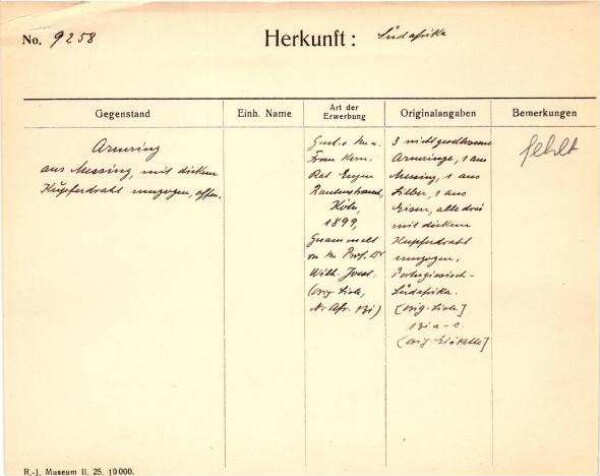 No. 9258
Herkunft: Südafrika
Gegenstand
Einh. Name
Art der
Erwerbung
Originalangaben
Bemerkungen
Armring
aus Messing, mit dickem
Kupferdraht umzogen, offen.
Frau Kom.
Rat Eugen
Rautenstrauch,
Köln,
1899,
Gesammelt
v. Prof. Dr
Wilh. Joest.
(Orig. Liste,
3 nicht geschlossene
Armringe, 1 aus
Messing, 1 aus
Silber, 1 aus
Eisen, alle drei
mit dickem
Kupferdraht
umzogen,
Portugiesisch-
Südafrika.
[Orig. Liste]
[Orig. Etikette]
fehlt
R.-J. Museum II. 25. 10000.